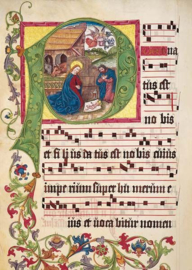 P
na
tus est
no bis
et fi li us da tus est no bis cuius
impe rium super hu merum e
ius et voca bitur nomen